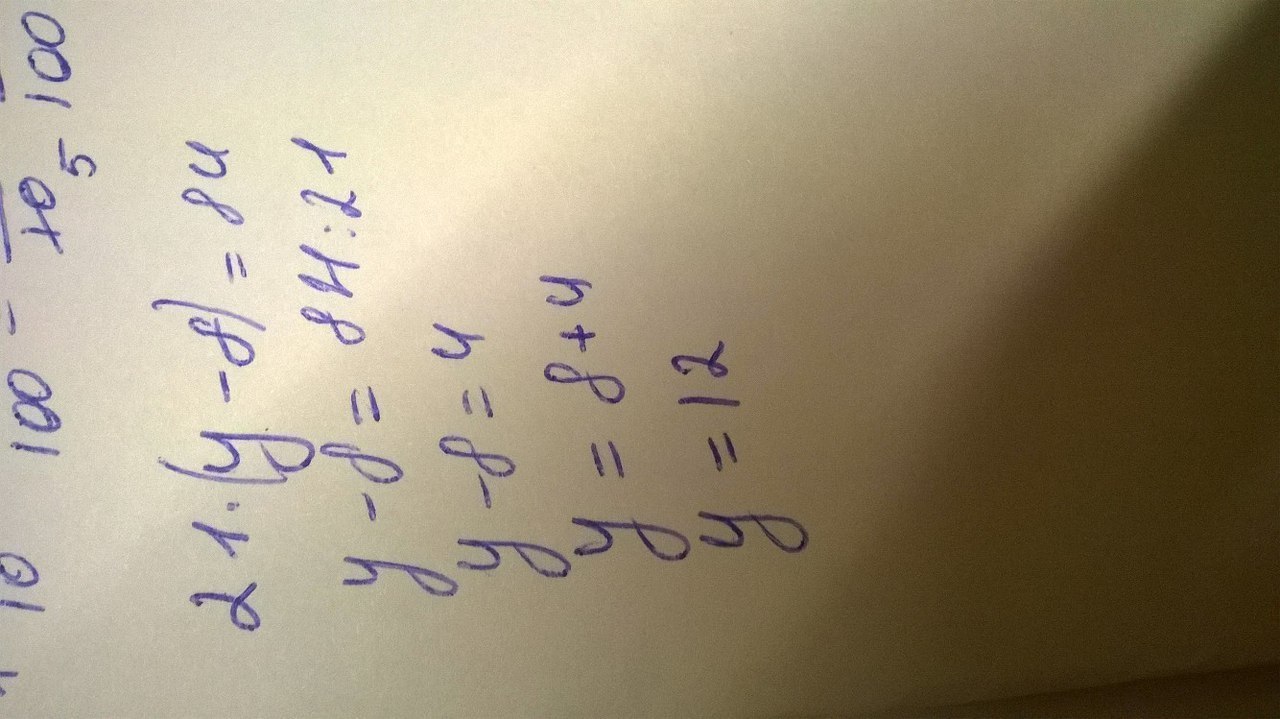 10 100 - 10 5 100
21·(y-8)=84
y-8=84:21
y-8=4
y=8+4
y=12